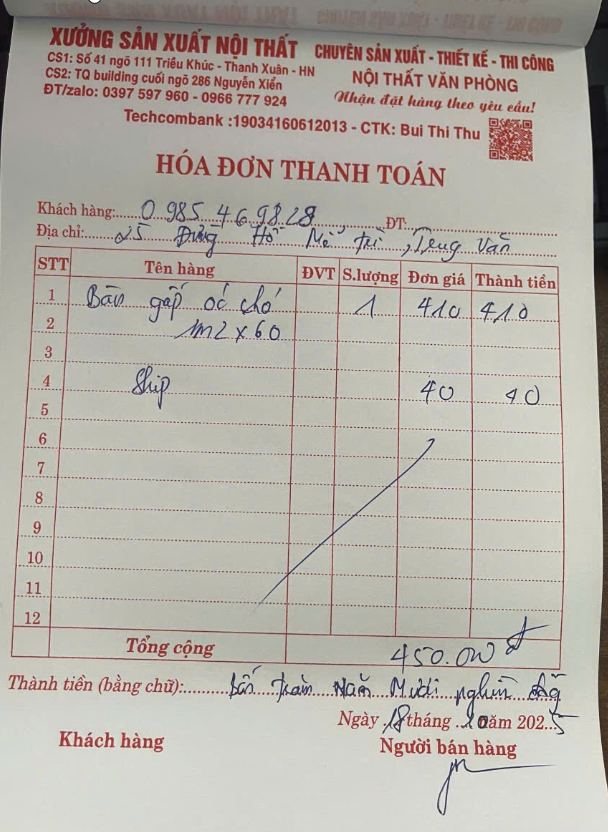 XƯỞNG SẢN XUẤT NỘI THẤT
CS1: Số 41 ngõ 111 Triều Khúc - Thanh Xuân - HN
CS2: TQ building cuối ngõ 286 Nguyễn Xiển
ĐT/zalo: 0397 597 960 - 0966 777 924
CHUYÊN SẢN XUẤT - THIẾT KẾ - THI CÔNG
NỘI THẤT VĂN PHÒNG
Nhận đặt hàng theo yêu cầu!
Techcombank :19034160612013 - CTK: Bui Thi Thu
HÓA ĐƠN THANH TOÁN
Khách hàng: 0.985 469828 ĐT:
Địa chỉ: 25 Đường Hồ Mễ Trì, Trung Văn
STT Tên hàng ĐVT S.lượng Đơn giá Thành tiền
1 Bàn gấp óc chó 1 410 410
2 1m2 x 60
3
4 Ship 40 40
5
6
7
8
9
10
11
12
Tổng cộng 450.000 đ
Thành tiền (bằng chữ): Bốn trăm Năm Mươi nghìn đồng
Ngày 18 tháng 10 năm 2025
Khách hàng Người bán hàng